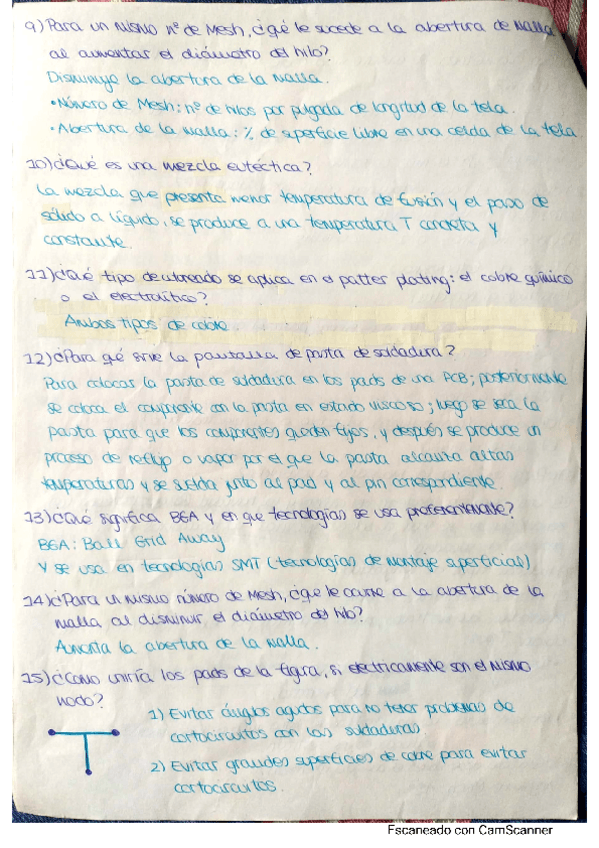 9) Para un mismo nº de Mesh, ¿qué le sucede a la abertura de malla
al aumentar el diámetro del hilo?
Disminuye la abertura de la malla.
• Número de Mesh: nº de hilos por pulgada de longitud de la tela.
• Abertura de la malla: % de superficie libre en una celda de la tela
10) ¿Qué es una mezcla eutéctica?
La mezcla que presenta menor temperatura de fusión y el paso de
sólido a líquido, se produce a una temperatura T concreta y
constante.
11) ¿Qué tipo de se aplica en el patter plating: el cobre químico
o el electrolítico?
Ambos tipos de cobre
12) ¿Para qué sirve la pantalla de pasta de soldadura?
Para colocar la pasta de soldadura en los pads de una PCB; posteriormente
se coloca el componente con la pasta en estado viscoso; luego se seca la
pasta para que los componentes queden fijos, y después se produce un
proceso de reflujo o vapor por el que la pasta alcanza altas
temperaturas y se suelda junto al pad y al pin correspondiente.
13) ¿Qué significa BGA y en que tecnologías se usa preferentemente?
BGA: Ball Grid Away
Y se usa en tecnologías SMT (tecnologías de montaje superficial)
14) ¿Para un mismo número de Mesh, ¿qué le ocurre a la abertura de la
malla al disminuir el diámetro del hilo?
Aumenta la abertura de la malla.
15) ¿Cómo uniría los pads de la figura, si electricamente son el mismo
nodo?
1) Evitar ángulos agudos para no tener problemas de
cortocircuitos con las soldaduras
2) Evitar grandes superficies de cobre para evitar
cortocircuitos.
Escaneado con CamScanner